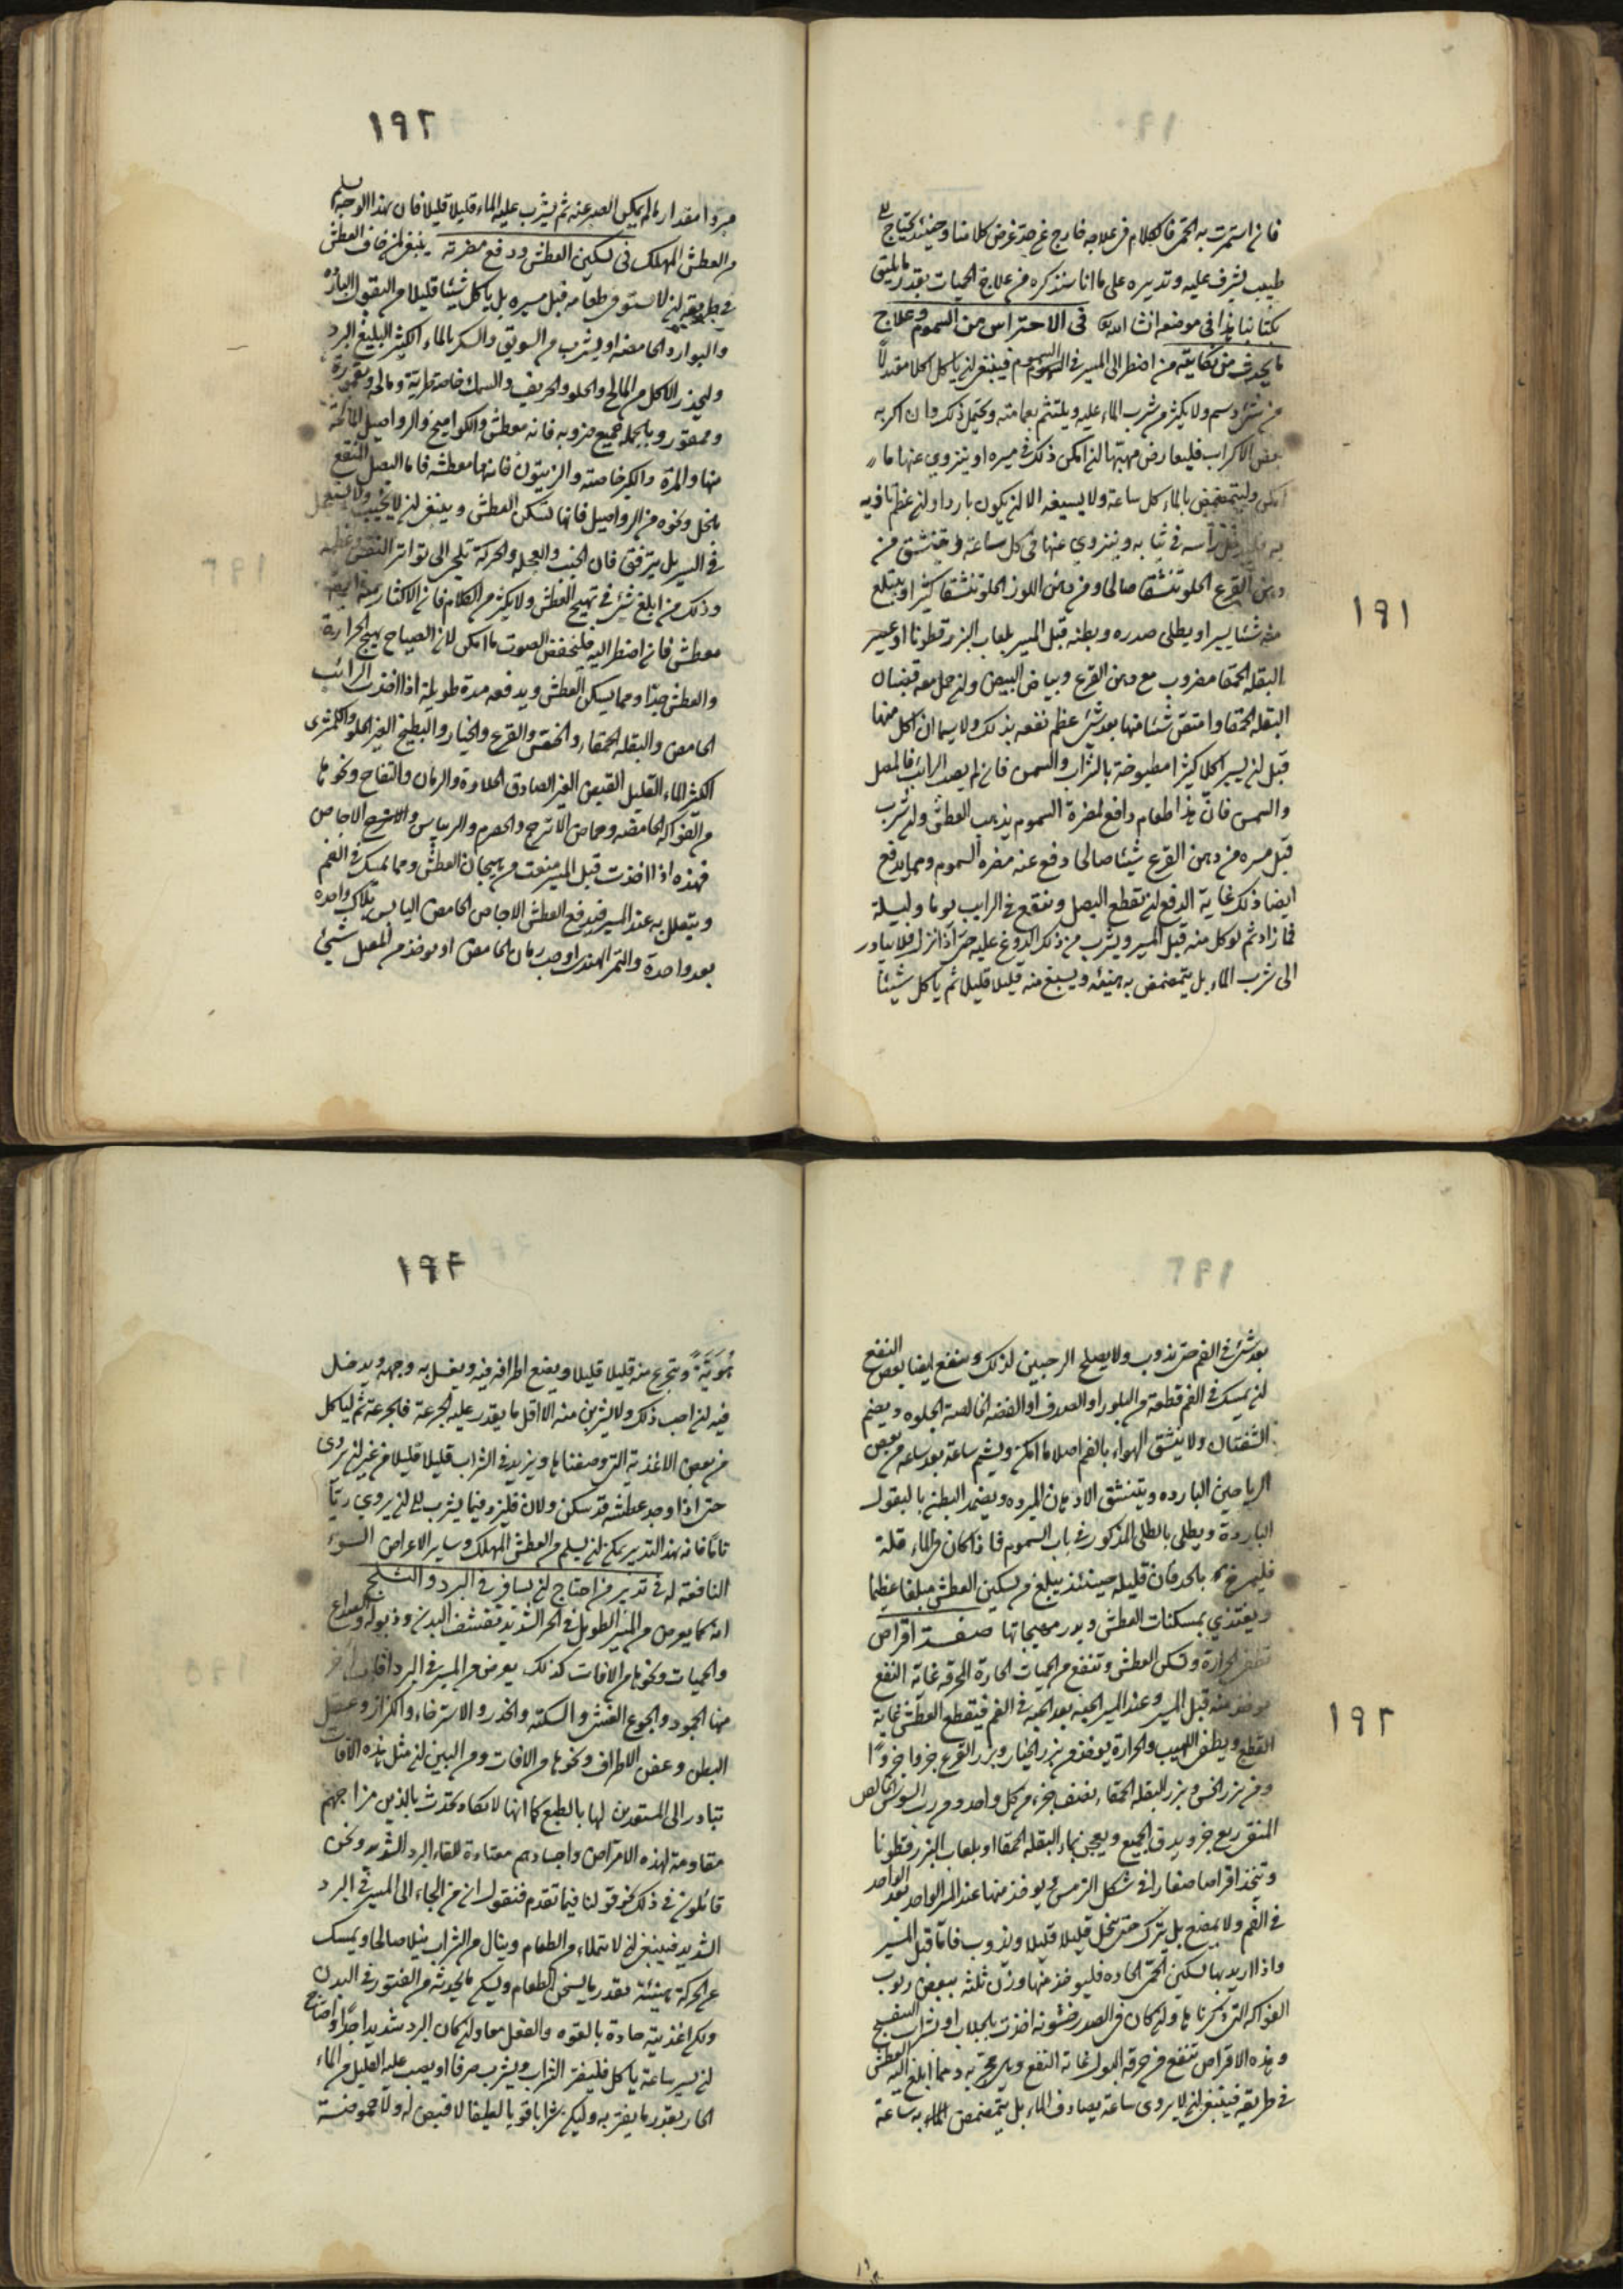 ١٩١
فان استمرت به الحمى فالكلام فى علاجه خارج عن حد غرض كلامنا وحينئذ يحتاج الى
طبيب يشرف عليه وتدبيره على ما انا سنذكره من علاج الحميات بقدر ما يليق
بكتابنا هذا فى موضعه انشا الله فى الاحتراس من السموم وعلاج
ما يحدث من نكايته من اضطر الى المسير فى السموم فينبغى ان ياكل اكلا معتدلاً
من شئ دسم ولا يكثر من شرب الماء عليه ويلتثم بعمامته ويحتمل ذلك وان اكربه
بعض الاكراب فليعارض مهبها ان امكن ذلك فى مسيره او ينزوى عنها ما
امكن وليتمضمض بالماء كل ساعة ولا يسيغه الا ان يكون باردا وان عظم تاذيه
به فليدخل رأسه فى ثيابه وينزوي عنها فى كل ساعة وليتنشق من
دهن القرع الحلو تنشقا صالحا ومن دهن اللوز الحلو تنشقا كثيرا ويبتلع
منه شئا يسيرا ويطلى صدره وبطنه قبل المسير بلعاب البزر قطونا او عصير
البقله الحمقا مضروب مع دهن القرع وبياض البيض وان حمل معه قضبان
البقله الحمقا وامتص شئا منها بعد شئ عظم نفعه بذلك ولا سيما ان اكل منها
قبل ان يسير اكلا كثيرا مطبوخة بالشراب والسمن فان لم يصب الرائب فالمصل
والسمن فان هذا طعام دافع لمضرة السموم يذهب العطش وان شرب
قبل مسيره من دهن القرع شيئا صالحا دفع عنه مضره السموم ومما يدفع
ايضا ذلك غاية الدفع ان يقطع البصل وينقع فى الرايب يوما وليلة
فما زاد ثم يوكل منه قبل المسير ويشرب من ذلك الدوغ عليه حتى اذا نزل فلا يبادر
الى شرب الماء بل يتمضمض به هنيئه ويسيغ منه قليلا قليلا ثم ياكل شيئا
١٩٢
مبردا مقدار ما لم يمكن الصبر عنه ثم يشرب عليه الماء قليلا قليلا فان بهذا الوجه يسلم
من العطش المهلك فى تسكين العطش ودفع مضرته ينبغى لمن خاف العطش
فى طريقه ان لا يستوفى طعامه قبل مسيره بل ياكل شيئا قليلا من البقول البارده
والبوارد الحامضه او يشرب من السويق والسكر بالماء الكثير البليغ البرد
وليحذر الاكل من المالح والحلو والحريف والسمك خاصة طرية ومالحه
وممقوره وبالجمله جميع ضروبه فانه معطش والكواميخ والرواصيل المالحة
منها والمرة والكبر خاصة والزيتون فانهما معطشه فاما البصل المنقع
بالخل ونحوه من الرواصيل فانها تسكن العطش وينبغى ان لا يخب ولا يستعجل
فى السير بل يترفق فان الخبب والعجله والحركة تلجى الى تواتر النفس وعظمه
وذلك من ابلغ شئ فى تهييج العطش ولا يكثر من الكلام فان الاكثار منه ايضا
معطش فان اضطر اليه فليخفض الصوت ما امكن لان الصياح يهيج الحرارة
والعطش جدا ومما يسكن العطش ويدفعه مدة طويلة اذا اخذت الرائب
الحامض والبقله الحمقا والخس والقرع والخيار والبطيخ الغير الحلو والكمثرى
الكثير الماء القليل القبض الغير الصادق الحلاوة والرمان والتفاح ونحوها
من الفواكه الحامضه وحماض الاترج والحصرم والريباس والاجاص
فهذه اذا اخذت قبل المسير منعت من هيجان العطش ومما يمسك فى الفم
ويتعلل به عند المسير فيدفع العطش الاجاص الحامض اليابس يلاك واحدة
بعد واحدة والتمر الهندى او حب رمان الحامض او يوخذ من المصل شئ
١٩٣
بعد شئ فى الفم حتى يذوب ولا يصلح الترنجبين لذلك وينفع ايضا بعض النفع
ان يمسك فى الفم قطعة من البلور او الصدف او الفضه الخالصة المجلوه ويضم
الشفتان ولا ينشق الهواء بالفم اصلا ما امكن ويشم ساعة بعد ساعه من بعض
الرياحين البارده ويتنشق الادهان المبرده ويضمد البطن بالبقول
الباردة ويطلى بالطلى المذكور فى باب السموم فاذا كان فى الماء قلة
فليمزج بالخل فان قليله حينئذ يبلغ من تسكين العطش مبلغا عظيما
ويغتذي بمسكنات العطش ويدر مهيجاتها صفة اقراص
تطفى الحرارة وتسكن العطش وتنفع من الحميات الحارة المحرقه غاية النفع
يوخذ منه قبل المسير وعند المسير الحبه بعد الحبه فى الفم فيقطع العطش غاية
القطع ويطفى اللهيب والحرارة يوخذ من بزر الخيار وبزر القرع جزوا جزوًا
ومن بزر الخس وبزر البقله الحمقاء نصف جزء من كل واحد ومن رب السوس الخالص
المنقى ربع جزء ويدق الجميع ويعجن بماء البقله الحمقا او بلعاب البزر قطونا
وتتخذ اقراصا صغارا فى شكل الترمس ويوخذ منها عند المسير الواحد بعد الواحد
فى الفم ولا يمضغ بل يترك حتى ينحل قليلا قليلا ويذوب فاما قبل المسير
واذا اريد بها تسكين الحمى الحاده فليوخذ منها وزن ثلثه ببعض ربوب
الفواكه التى ذكرناها وان كان فى الصدر خشونه اخذت بالجلاب او بشراب البنفسج
وهذه الاقراص تنفع من حرقة البول غاية النفع واما من ابلغ اليه العطش
فى طريقه فينبغى ان لا يروى ساعة يصادف الماء بل يتمضمض بالماء به ساعة
١٩٤
هُوَيْنَةً ويتجرع منه قليلا قليلا ويضع اطرافه فيه ويغسل به وجهه ويدخل
فيه ان احب ذلك ولا يشربن منه الا اقل ما يقدر عليه الجرعة فالجرعة ثم لياكل
من بعض الاغذية التى وصفناها ويزيد فى الشراب قليلا قليلا من غير ان يروى
حتى اذا وجد عطشه قد سكن ولان فليزد فيما يشرب الى ان يروي ريّا
تامًا فانه بهذا التدبير يمكن ان يسلم من العطش المهلك وساير الاعراض السوء
النافعة له فى تدبير من احتاج ان يسافر فى البرد والثلج
انه كما يعرض من المسير الطويل فى الحر الشديد تقشف البدن وذبوله والصداع
والحميات ونحوها من الافات كذلك يعرض من المسير فى البرد افات اخر
منها الجمود والجوع الغشى والسكتة والخدر والاسترخاء والكزاز وعقل
البطن وعفن الاطراف ونحوها من الافات ومن البين ان مثل هذه الافات
تبادر الى المستعدين لها بالطبع كما انها لا تكاد تحدث بالذين مزاجهم
مقاومة لهذه الامراض واجسادهم معتادة للقاء البرد الشديد ونحن
قائلون فى ذلك نحو قولنا فيما تقدم فنقول ان من الجاء الى المسير فى البرد
الشديد فينبغى ان لا يتملاء من الطعام وينال من الشراب نيلا صالحا ويمسك
عن الحركة هنيئة بقدر ما يسخن الطعام ويسكن ما يحدثه من الفتور فى البدن
وليكن اغذيته حارة بالقوه والفعل معا وان كان البرد شديدا جدًا واحتاج
ان يسير ساعة ياكل فليفتر الشراب ويشرب صرفا او يصب عليه القليل من الماء
الحار بقدر ما يفتر به وليكن شرابا قويا لطيفا لا قبض له ولا حموضة